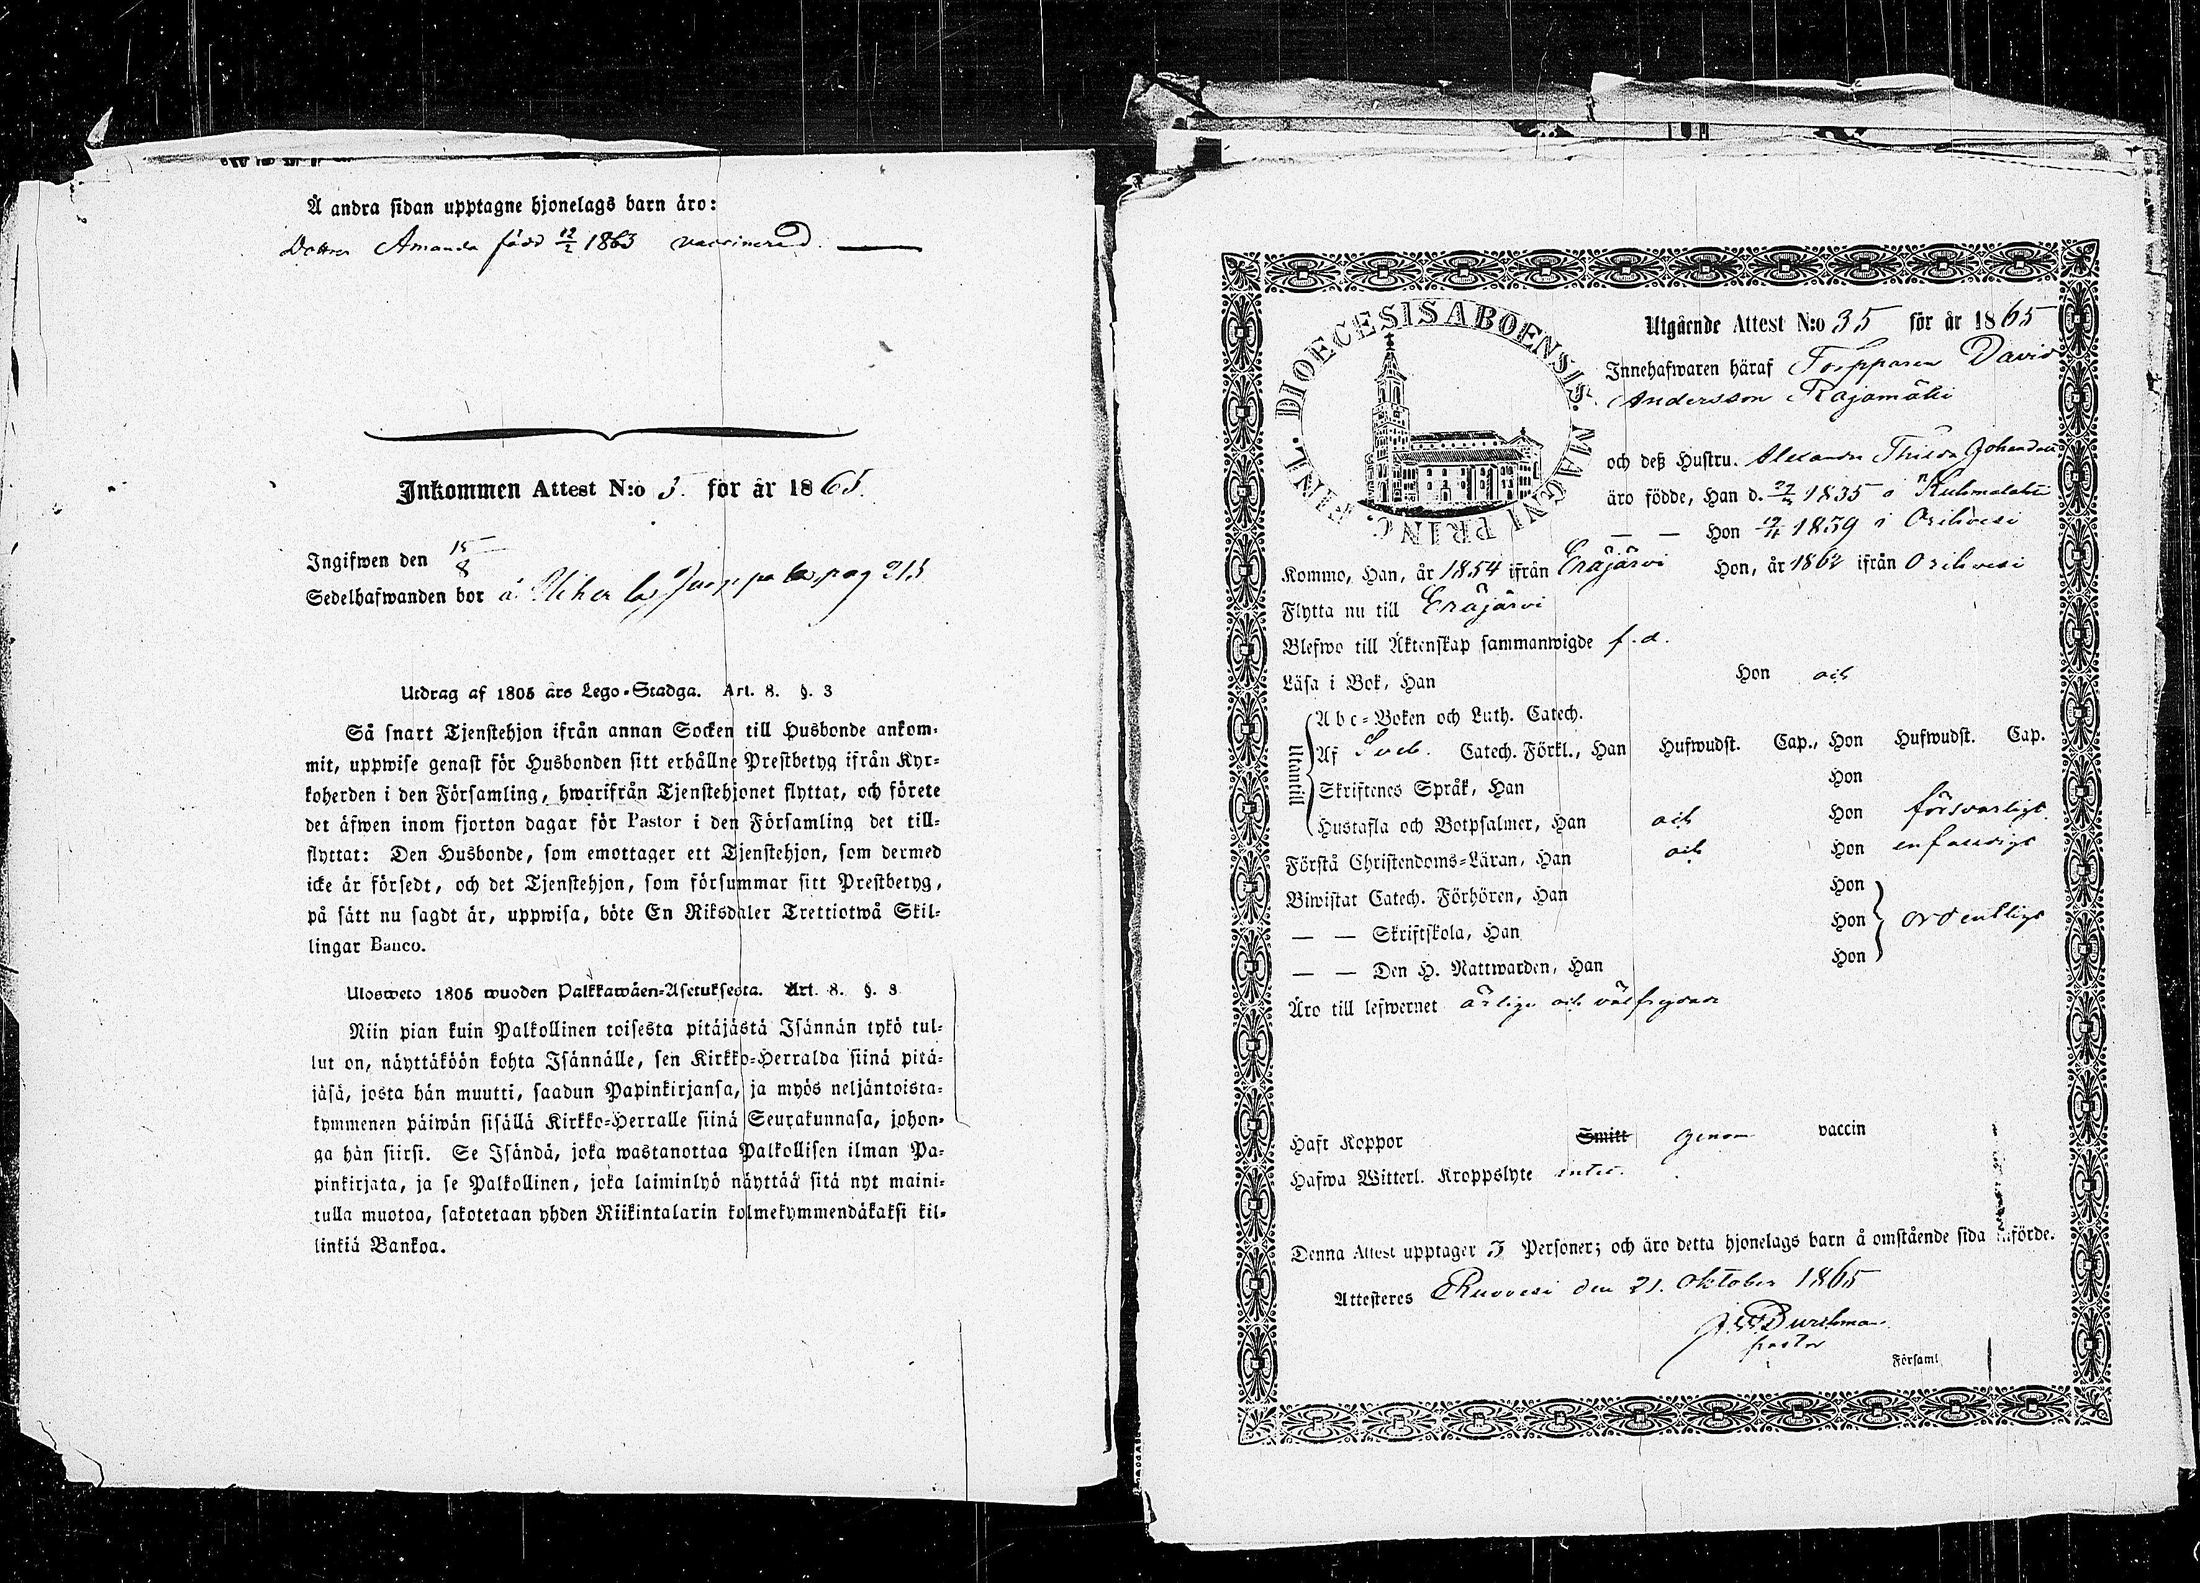 Å andra sidan upptagne hjonelags barn äro:
Dottren Amanda född 12/2 1863 vaccinerad.
Inkommen Attest N:o 5. för år 1865.
Ingifwen den 15/8
Sedelhafwanden bor å pag 215
Utdrag af 1805 års Lego-Stadga. Art. 8. §. 3
Så snart Tjenstehjon ifrån annan Socken till Husbonde ankom-
mit, uppwise genast för Husbonden sitt erhållne Prestbetyg ifrån Kyr-
koherden i den Församling, hwarifrån Tjenstehjonet flyttat, och förete
det äfwen inom fjorton dagar för Pastor i den Församling det till-
flyttat: Den Husbonde, som emottager ett Tjenstehjon, som dermed
icke är försedt, och det Tjenstehjon, som försummar sitt Prestbetyg,
på sätt nu sagdt är, uppwisa, böte En Riksdaler Trettiotwå Skil-
lingar Banco.
Ulosweto 1805 wuoden Palkkawäen-Asetuksesta. Art. 8. §. 3
Niin pian kuin Palkollinen toisesta pitäjästä Isännän tykö tul-
lut on, näyttäköön kohta Isännälle, sen Kirkko-Herralda siinä pitä-
jäsä, josta hän muutti, saadun Papinkirjansa, ja myös neljäntoista-
kymmenen päiwän sisällä Kirkko-Herralle siinä Seurakunnasa, johon-
ga hän siirsi. Se Isändä, joka wastanottaa Palkollisen ilman Pa-
pinkirjata, ja se Palkollinen, joka laiminlyö näyttää sitä nyt maini-
tulla muotoa, sakotetaan yhden Riikintalarin kolmekymmendäkaksi kil-
linkiä Bankoa.
DIOECESIS ABOENSIS. MAGNI PRINC. FINL.
Utgående Attest N:o 35 för år 1865
Innehafwaren häraf Torpparen David
Andersson Rajamäki
och deß Hustru. Alexandra Thilda Johansdr
äro födde, Han d. 1835 Kuhmalahti
— — Hon 1839 i Orihvesi
Kommo, Han, år 1854 ifrån Eräjärvi Hon, år 1862 ifrån Orihvesi
Flytta nu till Eräjärvi
Blefwo till Äktenskap sammanwigde f. d.
Läsa i Bok, Han Hon och
Utantill
Abc-Boken och Luth. Catech.
Af Sveb. Catech. Förkl., Han Hufwudst. Cap., Hon Hufwudst. Cap.
Skriftenes Språk, Han Hon
Hustafla och Botpsalmer, Han och Hon försvarligt.
Förstå Christendoms-Läran, Han och Hon enfaldigt
Biwistat Catech. Förhören, Han Hon
— — Skriftskola, Han Hon ordentligt
— — Den H. Nattwarden, Han Hon
Äro till lefwernet ärliga och välfrejdade
Haft Koppor Smitt genom vaccin
Hafwa Witterl. Kroppslyte intet.
Denna Attest upptager 3 Personer; och äro detta hjonelags barn å omstående sida införde.
Attesteres Ruovesi den 21. Oktober 1865
Durchman
pastor
Församl